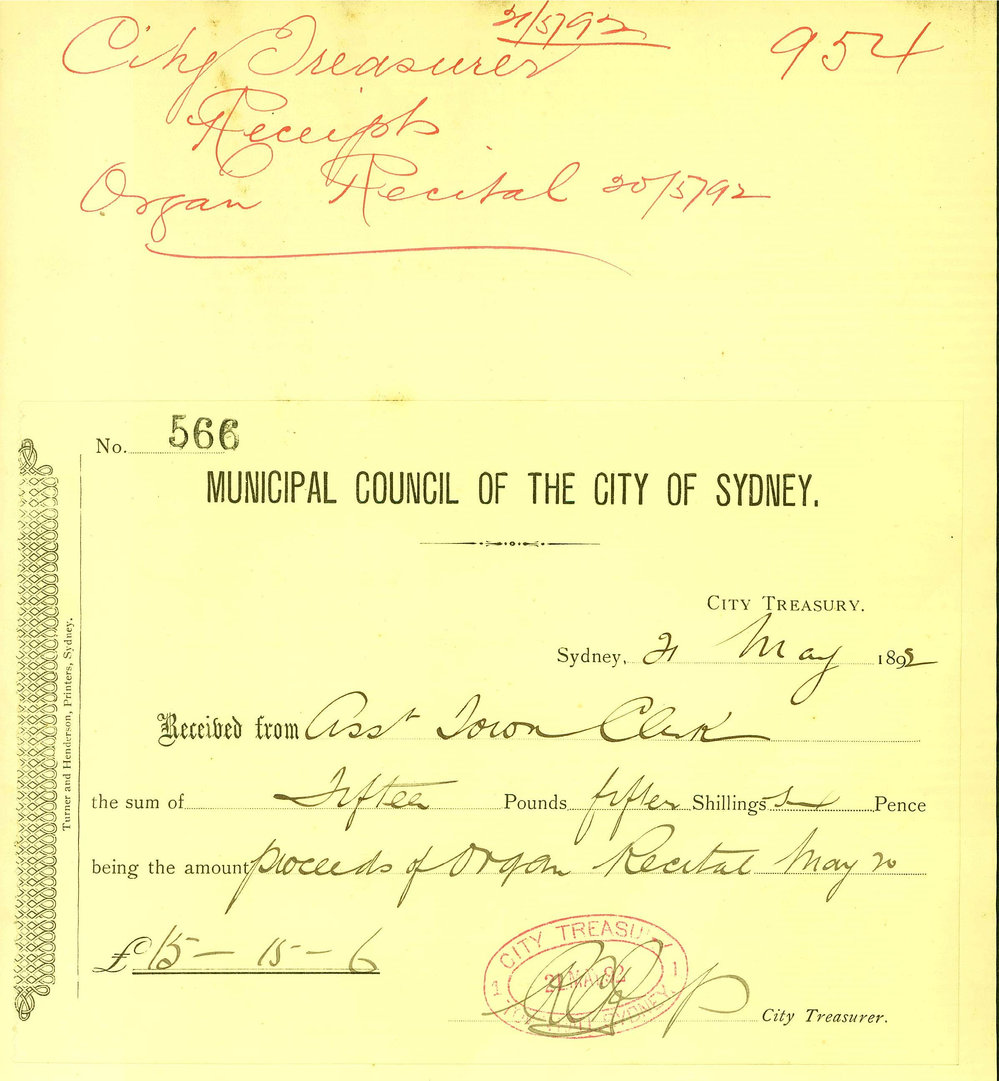 21/5/92
City Treasurer 954
Receipts
Organ Recital 20/5/92
No. 566
MUNICIPAL COUNCIL OF THE CITY OF SYDNEY.
CITY TREASURY.
Sydney, 21 May 1892
Received from Asst Town Clerk
the sum of Fifteen Pounds fifteen Shillings six Pence
being the amount proceeds of Organ Recital May 20
£15-15-6
CITY TREASURY
1 1
TOWN HALL SYDNEY.
City Treasurer.
Turner and Henderson, Printers, Sydney.